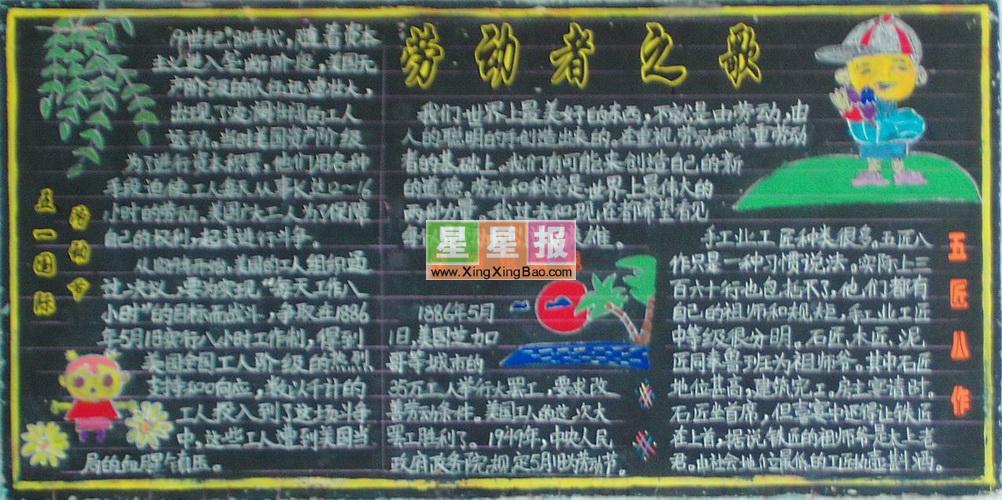 五一国际
劳动节
19世纪80年代，随着资本
主义进入垄断阶段，美国无
产阶级的队伍迅速壮大，
出现了波澜壮阔的工人
运动。当时美国资产阶级
为了进行资本积累，他们用各种
手段迫使工人每天从事长达12～16
小时的劳动。美国广大工人为了保障
自己的权利，起来进行斗争。
从1884年开始，美国的工人组织通
过决议，要为实现“每天工作八
小时”的目标而战斗，争取在1886
年5月1日实行八小时工作制，得到
美国全国工人阶级的热烈
支持和响应，数以千计的
工人投入到了这场斗争
中，这些工人遭到美国当
局的血腥镇压。
劳动者之歌
我们世界上最美好的东西，不就是由劳动，由
人的聪明的手创造出来的。在重视劳动和尊重劳动
者的基础上，我们有可能来创造自己的新
的道德。劳动和科学是世界上最伟大的
两种力量。我过去和现在都希望看见
雄。
星星报
www.XingXingBao.com
一
1886年5月
1日，美国芝加
哥等城市的
35万工人举行大罢工，要求改
善劳动条件。美国工人的这次大
罢工胜利了。1949年，中央人民
政府政务院规定5月1日为劳动节。
五匠八作
手工业工匠种类很多。五匠八
作只是一种习惯说法。实际上三
百六十行也包括不了，他们都有
自己的祖师和规矩。手工业工匠
中等级很分明。石匠、木匠、泥
匠同奉鲁班为祖师爷。其中石匠
地位甚高，建筑完工，房主宴请时
石匠坐首席，但喜宴中还得让铁匠
在上首，据说铁匠的祖师爷是太上老
君。由社会地位最低的工匠执壶斟酒。